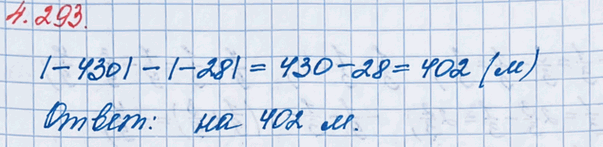 4.293.
|-430| - |-28| = 430 - 28 = 402 (м)
Ответ: на 402 м.